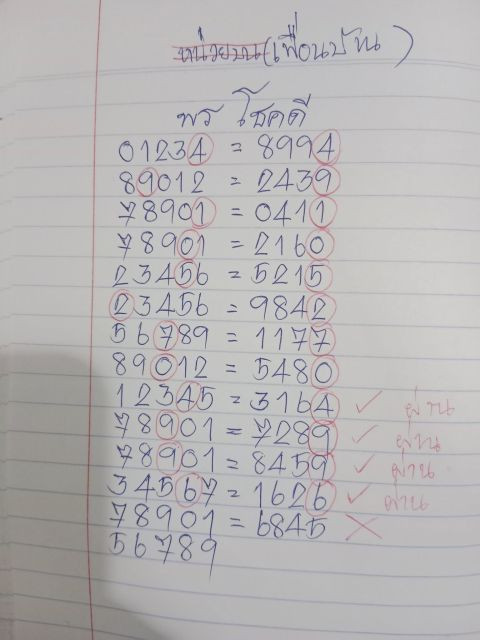 หน่วยบน (เพื่อนบ้าน)
พร โชคดี
01234 = 8994
89012 = 2439
78901 = 0411
78901 = 2160
23456 = 5215
23456 = 9842
56789 = 1177
89012 = 5480
12345 = 3164 ✓ ผ่าน
78901 = 7289 ✓ ผ่าน
78901 = 8459 ✓ ผ่าน
34567 = 1626 ✓ ผ่าน
78901 = 6845 ✗
56789